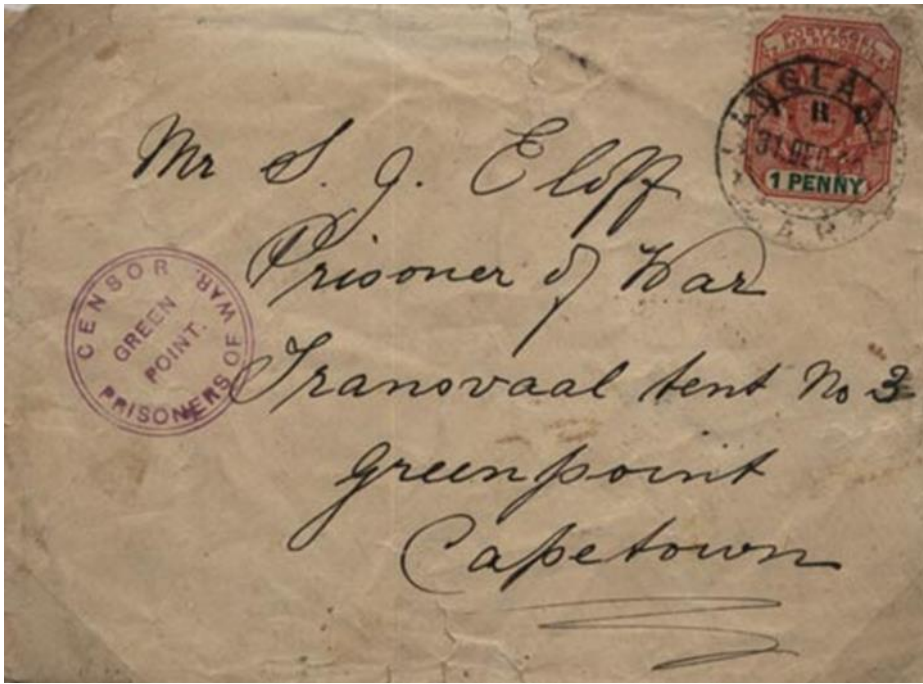 1 PENNY
Mr S. J. Eloff
Prisoner of War
Transvaal tent No 3
Greenpoint
Capetown
CENSOR
GREEN
POINT.
PRISONERS OF WAR.